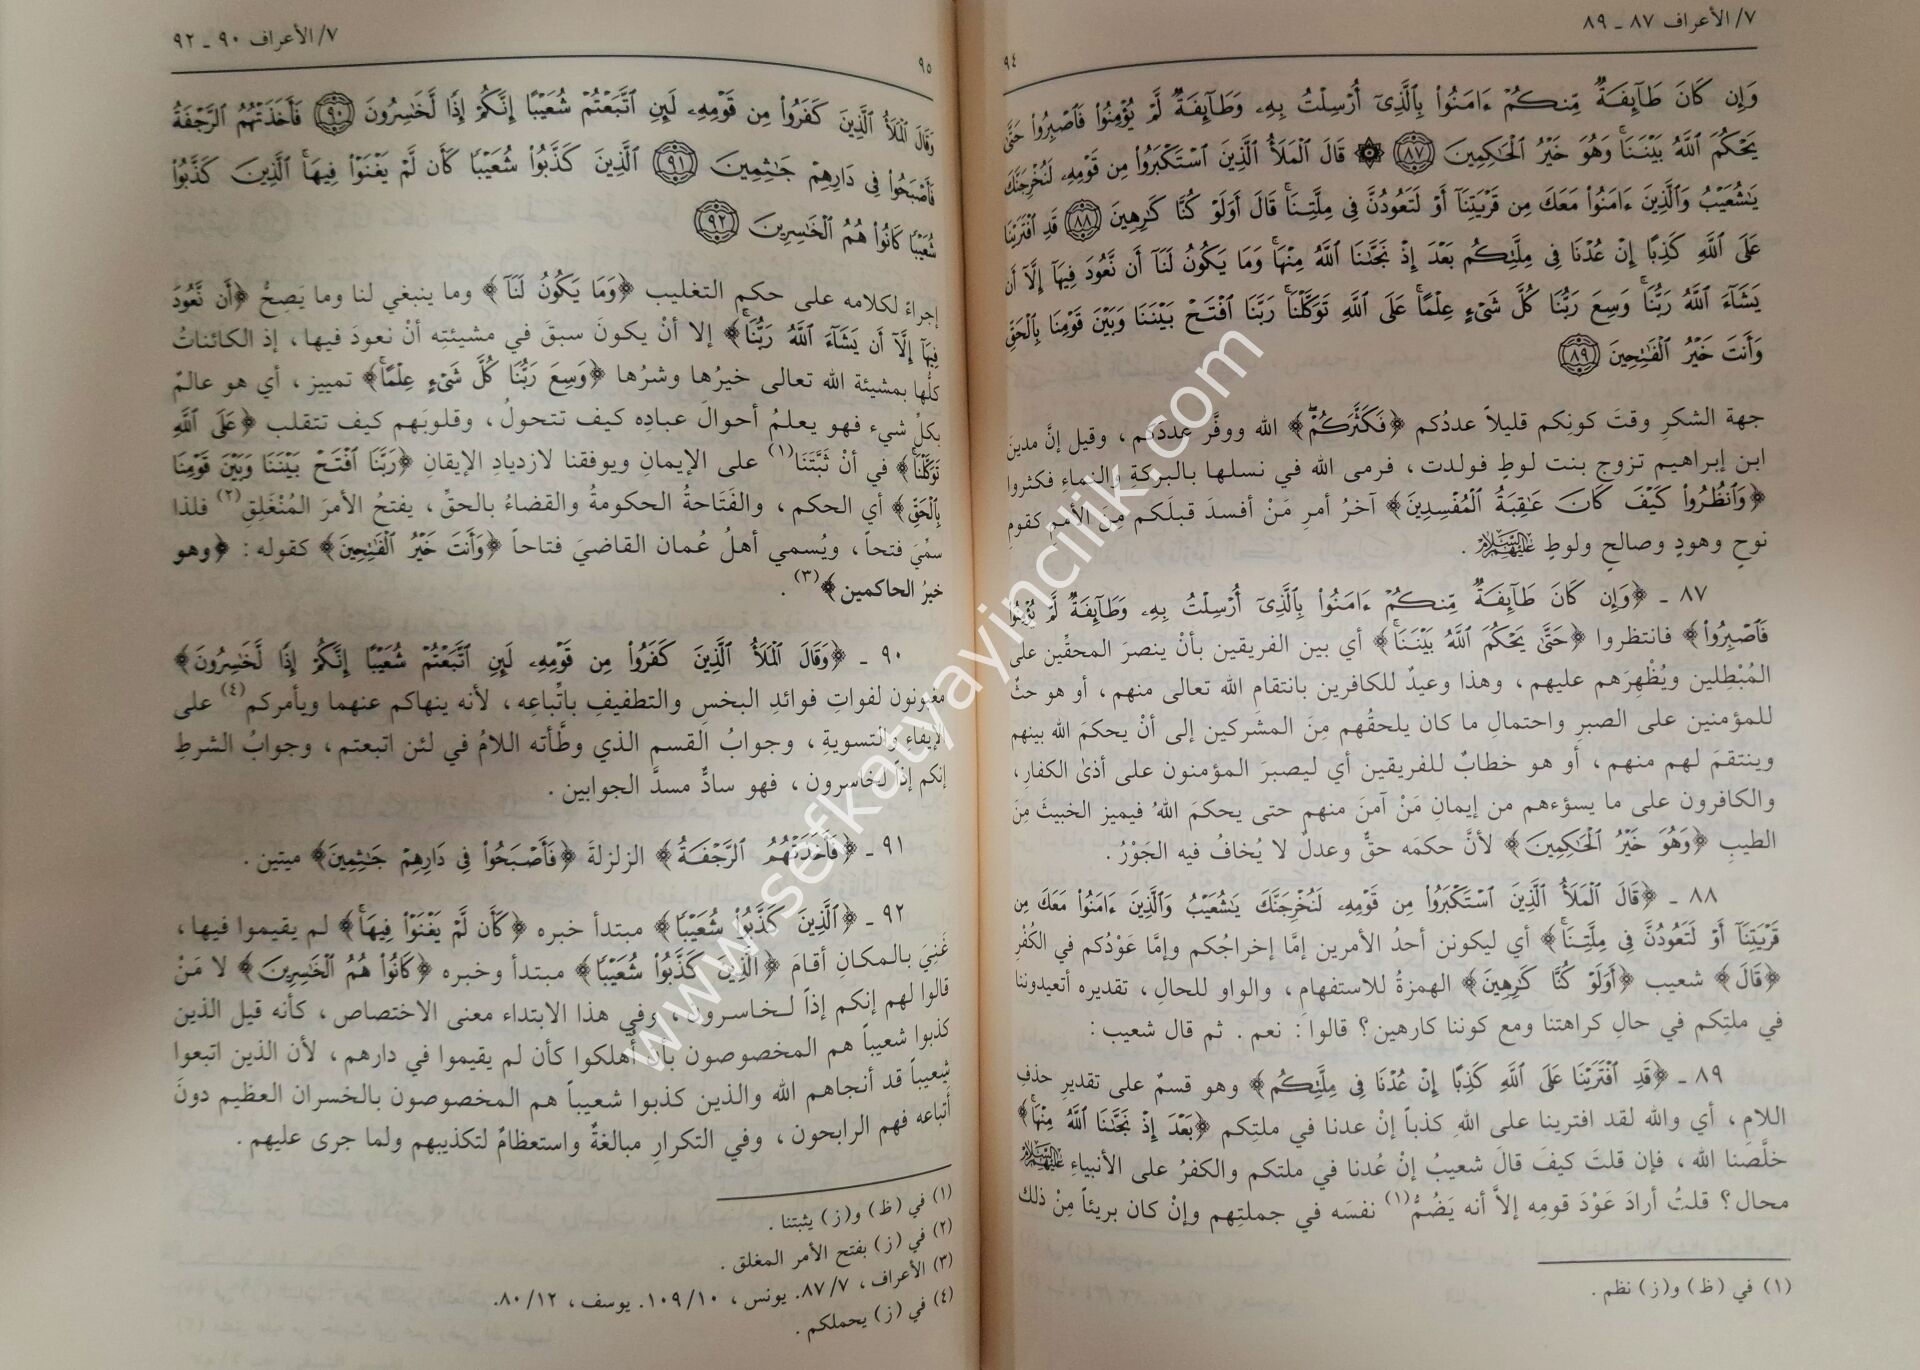 ٧/ الأعراف ٨٧ ـ ٨٩
٩٤
وَإِن كَانَ طَآئِفَةٌ مِّنكُمْ ءَامَنُوا۟ بِٱلَّذِىٓ أُرْسِلْتُ بِهِۦ وَطَآئِفَةٌ لَّمْ يُؤْمِنُوا۟ فَٱصْبِرُوا۟ حَتَّىٰ
يَحْكُمَ ٱللَّهُ بَيْنَنَا ۚ وَهُوَ خَيْرُ ٱلْحَٰكِمِينَ ﴿٨٧﴾ ۞ قَالَ ٱلْمَلَأُ ٱلَّذِينَ ٱسْتَكْبَرُوا۟ مِن قَوْمِهِۦ لَنُخْرِجَنَّكَ
يَٰشُعَيْبُ وَٱلَّذِينَ ءَامَنُوا۟ مَعَكَ مِن قَرْيَتِنَآ أَوْ لَتَعُودُنَّ فِى مِلَّتِنَا ۚ قَالَ أَوَلَوْ كُنَّا كَٰرِهِينَ ﴿٨٨﴾ قَدِ ٱفْتَرَيْنَا
عَلَى ٱللَّهِ كَذِبًا إِنْ عُدْنَا فِى مِلَّتِكُم بَعْدَ إِذْ نَجَّىٰنَا ٱللَّهُ مِنْهَا ۚ وَمَا يَكُونُ لَنَآ أَن نَّعُودَ فِيهَآ إِلَّآ أَن
يَشَآءَ ٱللَّهُ رَبُّنَا ۚ وَسِعَ رَبُّنَا كُلَّ شَىْءٍ عِلْمًا ۚ عَلَى ٱللَّهِ تَوَكَّلْنَا ۚ رَبَّنَا ٱفْتَحْ بَيْنَنَا وَبَيْنَ قَوْمِنَا بِٱلْحَقِّ
وَأَنتَ خَيْرُ ٱلْفَٰتِحِينَ ﴿٨٩﴾
جهة الشكرِ وقتَ كونِكم قليلاً عددُكم ﴿فَكَثَّرَكُمْ﴾ الله ووفَّر عددكم، وقيل إنَّ مدينَ
ابن إبراهيم تزوج بنت لوطٍ فولدت، فرمى الله في نسلها بالبركةِ والنماءِ فكثروا
﴿وَٱنظُرُوا۟ كَيْفَ كَانَ عَٰقِبَةُ ٱلْمُفْسِدِينَ﴾ آخرُ أمرِ مَنْ أفسدَ قبلَكم مِنَ الأممِ كقومِ
نوحٍ وهودٍ وصالحٍ ولوطٍ عليهم السلام .
٨٧ ـ ﴿وَإِن كَانَ طَآئِفَةٌ مِّنكُمْ ءَامَنُوا۟ بِٱلَّذِىٓ أُرْسِلْتُ بِهِۦ وَطَآئِفَةٌ لَّمْ يُؤْمِنُوا۟
فَٱصْبِرُوا۟﴾ فانتظروا ﴿حَتَّىٰ يَحْكُمَ ٱللَّهُ بَيْنَنَا﴾ أي بين الفريقين بأنْ ينصرَ المحقِّين على
المُبْطِلين ويُظْهِرَهم عليهم، وهذا وعيدٌ للكافرين بانتقامِ الله تعالى منهم، أو هو حثٌ
للمؤمنين على الصبرِ واحتمالِ ما كان يلحقُهم مِنَ المشركين إلى أنْ يحكمَ الله بينهم
وينتقمَ لهم منهم، أو هو خطابٌ للفريقين أي ليصبرَ المؤمنون على أذىٰ الكفارِ،
والكافرون على ما يسؤءهم من إيمانِ مَنْ آمنَ منهم حتى يحكمَ اللهُ فيميز الخبيثَ مِنَ
الطيبِ ﴿وَهُوَ خَيْرُ ٱلْحَٰكِمِينَ﴾ لأنَّ حكمَه حقٌّ وعدلٌ لا يُخافُ فيه الجَوْرُ.
٨٨ ـ ﴿قَالَ ٱلْمَلَأُ ٱلَّذِينَ ٱسْتَكْبَرُوا۟ مِن قَوْمِهِۦ لَنُخْرِجَنَّكَ يَٰشُعَيْبُ وَٱلَّذِينَ ءَامَنُوا۟ مَعَكَ مِن
قَرْيَتِنَآ أَوْ لَتَعُودُنَّ فِى مِلَّتِنَا﴾ أي ليكونن أحدُ الأمرين إمَّا إخراجُكم وإمَّا عَوْدُكم في الكُفْرِ
﴿قَالَ﴾ شعيب ﴿أَوَلَوْ كُنَّا كَٰرِهِينَ﴾ الهمزةُ للاستفهامِ، والواو للحالِ، تقديره أتعيدوننا
في ملتِكم في حالِ كراهتنا ومع كوننا كارهين؟ قالوا: نعم. ثم قال شعيب:
٨٩ ـ ﴿قَدِ ٱفْتَرَيْنَا عَلَى ٱللَّهِ كَذِبًا إِنْ عُدْنَا فِى مِلَّتِكُم﴾ وهو قسمٌ على تقديرِ حذفِ
اللامِ، أي والله لقد افترينا على اللهِ كذباً إنْ عدنا في ملتِكم ﴿بَعْدَ إِذْ نَجَّىٰنَا ٱللَّهُ مِنْهَا﴾
خلَّصنا الله، فإن قلتَ كيفَ قالَ شعيبُ إنْ عُدنا في ملتكم والكفرُ على الأنبياءِ عليهم السلام
محال؟ قلتُ أرادَ عَوْدَ قومِه إلاَّ أنه يَضُمُّ(١) نفسَه في جملتِهم وإنْ كان بريئاً مِنْ ذلك
(١) في (ظ) و(ز) نظم.
٧/ الأعراف ٩٠ ـ ٩٢
٩٥
وَقَالَ ٱلْمَلَأُ ٱلَّذِينَ كَفَرُوا۟ مِن قَوْمِهِۦ لَئِنِ ٱتَّبَعْتُمْ شُعَيْبًا إِنَّكُمْ إِذًا لَّخَٰسِرُونَ ﴿٩٠﴾ فَأَخَذَتْهُمُ ٱلرَّجْفَةُ
فَأَصْبَحُوا۟ فِى دَارِهِمْ جَٰثِمِينَ ﴿٩١﴾ ٱلَّذِينَ كَذَّبُوا۟ شُعَيْبًا كَأَن لَّمْ يَغْنَوْا۟ فِيهَا ۚ ٱلَّذِينَ كَذَّبُوا۟
شُعَيْبًا كَانُوا۟ هُمُ ٱلْخَٰسِرِينَ ﴿٩٢﴾
إجراءً لكلامه على حكمِ التغليب ﴿وَمَا يَكُونُ لَنَآ﴾ وما ينبغي لنا وما يَصِحُّ ﴿أَن نَّعُودَ
فِيهَآ إِلَّآ أَن يَشَآءَ ٱللَّهُ رَبُّنَا﴾ إلا أنْ يكونَ سبقَ في مشيئتِه أنْ نعودَ فيها، إذ الكائناتُ
كلُّها بمشيئة الله تعالى خيرُها وشرُها ﴿وَسِعَ رَبُّنَا كُلَّ شَىْءٍ عِلْمًا﴾ تمييز، أي هو عالمٌ
بكلِّ شيء فهو يعلمُ أحوالَ عبادِه كيف تتحولُ، وقلوبَهم كيف تتقلب ﴿عَلَى ٱللَّهِ
تَوَكَّلْنَا﴾ في أنْ ثبَّتَنَا(١) على الإيمانِ ويوفقنا لازديادِ الإيقانِ ﴿رَبَّنَا ٱفْتَحْ بَيْنَنَا وَبَيْنَ قَوْمِنَا
بِٱلْحَقِّ﴾ أي الحكم، والفَتَاحةُ الحكومةُ والقضاءُ بالحقِّ، يفتحُ الأمرَ المُنْغَلِق(٢) فلذا
سمِّيَ فتحاً، ويُسمي أهلُ عُمان القاضيَ فتاحاً ﴿وَأَنتَ خَيْرُ ٱلْفَٰتِحِينَ﴾ كقوله: ﴿وهو
خيرُ الحاكمين﴾(٣).
٩٠ ـ ﴿وَقَالَ ٱلْمَلَأُ ٱلَّذِينَ كَفَرُوا۟ مِن قَوْمِهِۦ لَئِنِ ٱتَّبَعْتُمْ شُعَيْبًا إِنَّكُمْ إِذًا لَّخَٰسِرُونَ﴾
مغبونون لفواتِ فوائدِ البخسِ والتطفيفِ باتِّباعِه، لأنه ينهاكم عنهما ويأمركم(٤) على
الإيفاء والتسويةِ، وجوابُ القسم الذي وطَّأته اللامُ في لئن اتبعتم، وجوابُ الشرط
إنكم إذاً لخاسرون، فهو سادٌّ مسدَّ الجوابين.
٩١ ـ ﴿فَأَخَذَتْهُمُ ٱلرَّجْفَةُ﴾ الزلزلةَ ﴿فَأَصْبَحُوا۟ فِى دَارِهِمْ جَٰثِمِينَ﴾ ميتين.
٩٢ ـ ﴿ٱلَّذِينَ كَذَّبُوا۟ شُعَيْبًا﴾ مبتدأ خبره ﴿كَأَن لَّمْ يَغْنَوْا۟ فِيهَا﴾ لم يقيموا فيها،
غَنيَ بالمكانِ أقامَ ﴿ٱلَّذِينَ كَذَّبُوا۟ شُعَيْبًا﴾ مبتدأ وخبره ﴿كَانُوا۟ هُمُ ٱلْخَٰسِرِينَ﴾ لا مَنْ
قالوا لهم إنكم إذاً لخاسرون، وفي هذا الابتداء معنى الاختصاص، كأنه قيل الذين
كذبوا شعيباً هم المخصوصون بأن أُهلكوا كأن لم يقيموا في دارهم، لأن الذين اتبعوا
شعيباً قد أنجاهم الله والذين كذبوا شعيباً هم المخصوصون بالخسران العظيم دونَ
أتباعه فهم الرابحون، وفي التكرارِ مبالغةٌ واستعظامٌ لتكذيبهم ولما جرى عليهم.
(١) في (ظ) و(ز) يثبتنا.
(٢) في (ز) بفتح الأمر المغلق.
(٣) الأعراف، ٨٧/٧. يونس، ١٠٩/١٠. يوسف، ٨٠/١٢.
(٤) في (ز) يحملكم.
www.sefkatyayincilik.com